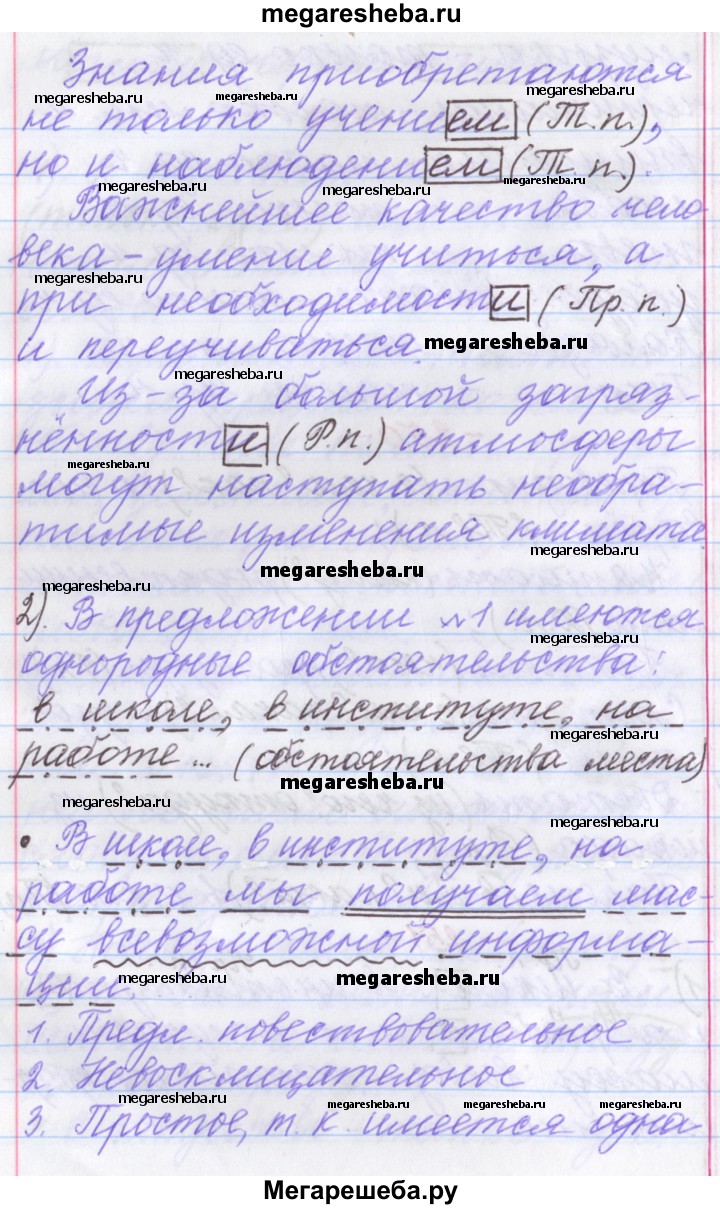 megaresheba.ru
Знания приобретаются
megaresheba.ru megaresheba.ru megaresheba.ru
не только учением (Т.п.),
но и наблюдением (Т.п.).
megaresheba.ru megaresheba.ru megaresheba.ru
Важнейшее качество чело
века – умение учиться, а
megaresheba.ru
при необходимости (Пр.п.)
и переучиваться.
megaresheba.ru
megaresheba.ru
Из-за большой загряз-
нённости (Р.п.) атмосферы
megaresheba.ru
могут наступать необра-
тимые изменения климата
megaresheba.ru
megaresheba.ru
megaresheba.ru
2). В предложении №1 имеются
megaresheba.ru
однородные обстоятельства:
в школе, в институте, на
megaresheba.ru
работе... (обстоятельства места)
megaresheba.ru
megaresheba.ru
megaresheba.ru
• В школе, в институте, на
работе мы получаем мас-
су всевозможной информа-
megaresheba.ru megaresheba.ru megaresheba.ru
ции.
1. Предл. повествовательное
2. Невосклицательное
megaresheba.ru megaresheba.ru megaresheba.ru megaresheba.ru megaresheba.ru
3. Простое, т.к. имеется одна
Мегарешеба.ру